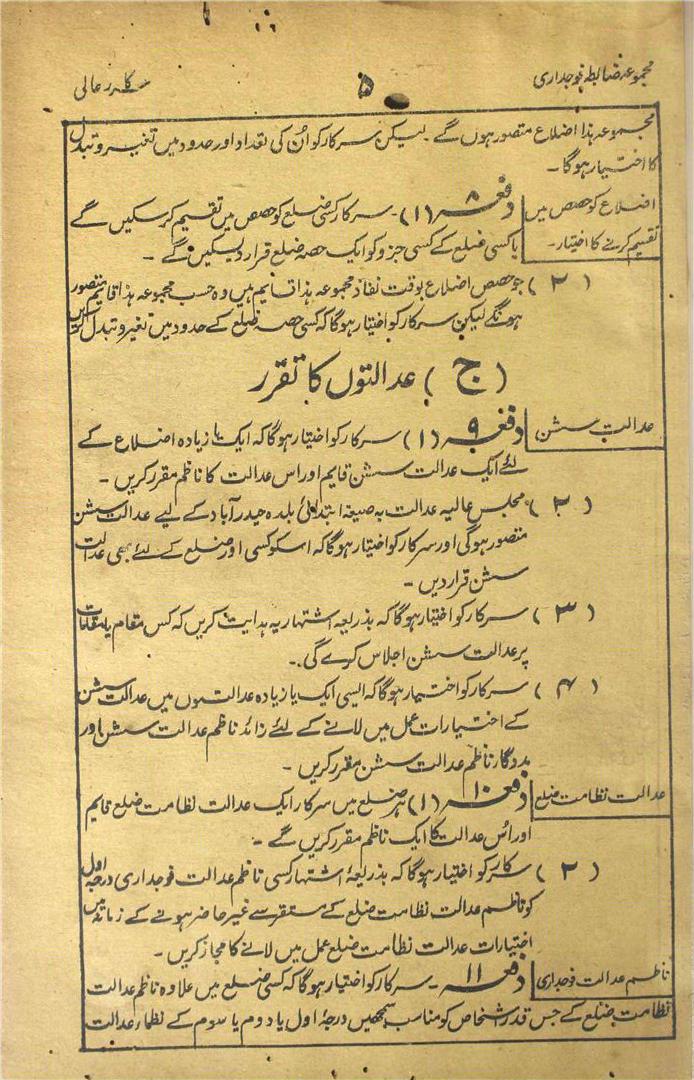 مجموعہ ضابطہ فوجداری
۵
سرکار عالی
مجموعہ ہذا اضلاع متصور ہوں گے ۔ لیکن سرکار کو اُن کی تعداد اور حدود میں تغیر و تبدل
کا اختیار ہوگا ۔
اضلاع کو حصص میں
تقسیم کرنے کا اختیار ۔
دفعہ ۸ (۱) ۔ سرکار کسی ضلع کو حصص میں تقیم کرسکیں گے
یا کسی ضلع کے کسی جزو کو ایک حصہ ضلع قرار دیسکیں گے ۔
(۲) جو حصص اضلاع بوقت نفاذ مجموعہ ہذا قایم ہیں وہ حسب مجموعہ ہذا قایم متصور
ہونگے لیکن سرکار کو اختیار ہوگا کہ کسی حصہ ضلع کے حدود میں تغیر و تبدل کریں
(ج) عدالتوں کا تقرر
عدالت سشن
دفعہ ۹ (۱) سرکار کو اختیار ہوگا کہ ایک یا زیادہ اضلاع کے
لئے ایک عدالت سشن قایم اور اس عدالت کا ناظم مقرر کریں ۔
(۲) مجلس عالیہ عدالت بہ صیغہ ابتدائی بلدہ حیدرآباد کے لیے عدالت سشن
متصور ہوگی اور سرکار کو اختیار ہوگا کہ اسکو کسی اور ضلع کے لئے بھی عدالت
سشن قرار دیں ۔
(۳) سرکار کو اختیار ہوگا کہ بذریعہ اشتہار یہ ہدایت کریں کہ کس مقام یا مقامات
پر عدالت سشن اجلاس کرے گی ۔
(۴) سرکار کو اختیار ہوگا کہ ایسی ایک یا زیادہ عدالتوں میں عدالت سشن
کے اختیارات عمل میں لانے کے لئے زائد ناظم عدالت سشن اور
مددگار ناظم عدالت سشن مقرر کریں ۔
عدالت نظامت ضلع
دفعہ ۱۰ (۱) ہر ضلع میں سرکار ایک عدالت نظامت ضلع قایم
اور اُس عدالت کا ایک ناظم مقرر کریں گے ۔
(۲) سرکار کو اختیار ہوگا کہ بذریعۂ اشتہار کسی ناظم عدالت فوجداری درجہ اول
کو ناظم عدالت نظامت ضلع کے مستقر سے غیر حاضر ہونے کے زمانہ میں
اختیارات عدالت نظامت ضلع عمل میں لانے کا مجاز کریں ۔
ناظم عدالت فوجداری
دفعہ ۱۱ ۔ سرکار کو اختیار ہوگا کہ کسی ضلع میں علاوہ ناظم عدالت
نظامت ضلع کے جس قدر اشخاص کو مناسب سمجھیں درجۂ اول یا دوم یا سوم کے نظمار عدالت